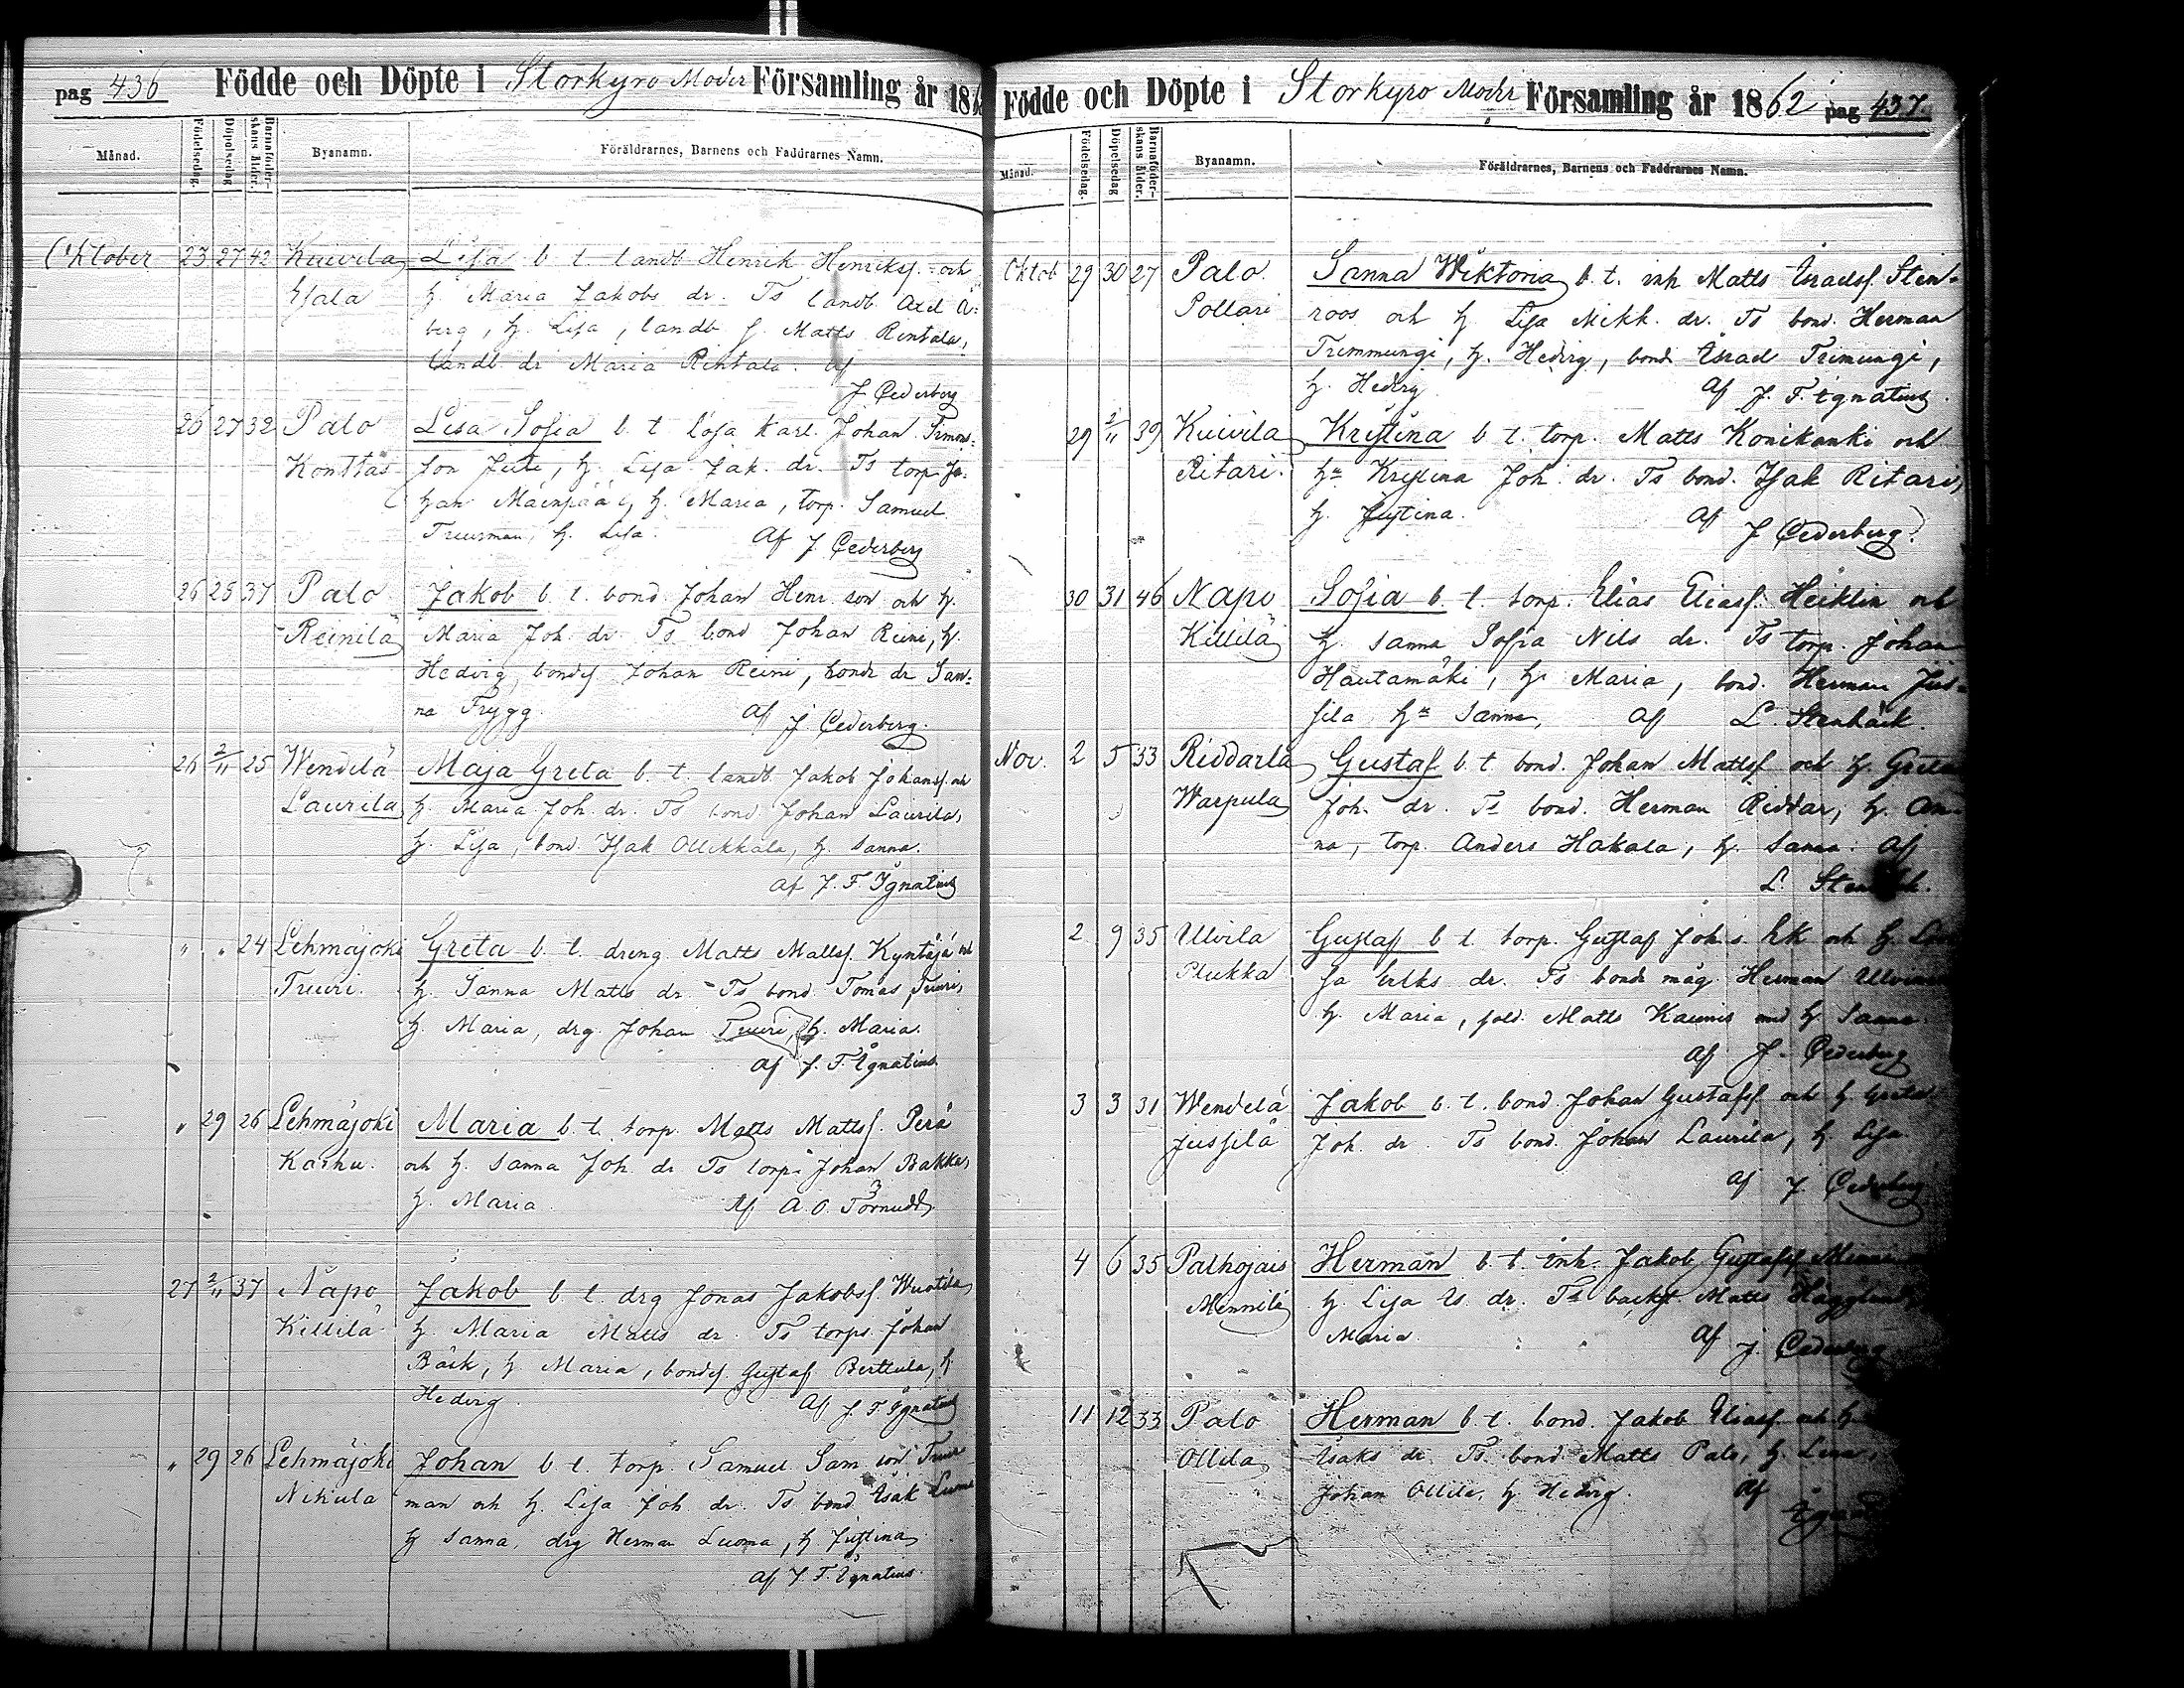 pag 436 Födde och Döpte i Storkyro Moder Församling år 186
Månad. Födelsedag. Döpelsedag Barnaföderskans ålder. Byanamn. Föräldrarnes, Barnens och Faddrarnes Namn.
October 23 27 42 Kuivila Lisa b. t. landb Henrik Henriksf. och
h. Maria Jakobs dr. Ts landb. Axel Å=
berg, h. Lisa, landb. f. Matts Rintala,
landb. dr Maria Rintala. af
J Cederberg
26 27 32 Palo Lisa Sofia b. t lösa karl. Johan Simons=
Konttas son Juti, h. Lisa Jak. dr. Ts torp Jo=
han Mäenpää, h. Maria, torp. Samuel
Truusman, h. Lisa. Af J Cederberg
26 25 37 Palo Jakob b. t. bond. Johan Henr. son och h.
Reinilä Maria Joh. dr. Ts bond Johan Reini, h.
Hedvig, bondes Johan Reini, bonde dr San=
na Frygg. af J. Cederberg.
26 2/11 25 Wendelä Maja Greta b. t. landb. Jakob Johansf. och
Laurila h. Maria Joh. dr. Ts bond. Johan Laurila,
h. Lisa, bond. Isak Ollikkala, h. Sanna.
af J. F. Ignatius
" " 24 Lehmäjoki Greta b. t. dreng Matts Mattsf. Kyntäjä och
Truuri. h. Sanna Matts dr. Ts bond. Tomas Truuri,
h. Maria, drg. Johan Truuri, h. Maria.
af J. F. Ignatius.
" 29 26 Lehmäjoki Maria b. t. torp. Matts Mattsf. Perä
Karhu. och h. Sanna Joh. dr Ts torp. Johan Bakka,
h. Maria. Af A. O. Törnudd
27 2/11 37 Napo Jakob b. t. drg Jonas Jakobsf. Wuotila,
Killilä h. Maria Matts dr. Ts torp. Johan
Bäck, h. Maria, bondes Gustaf Berttula, h.
Hedvig. af J. F. Ignatius
" 29 26 Lehmäjoki Johan b. t. torp. Samuel Sam son Truus
Nikula man och h. Lisa Joh. dr. Ts. bond Isak Luoma
h Sanna, drg Herman Luoma, h Justina
af J. F. Ignatius
Födde och Döpte i Storkyro Moder Församling år 1862 pag 437.
Månad. Födelsedag. Döpelsedag Barnaföderskans ålder. Byanamn. Föräldrarnes, Barnens och Faddrarnes Namn.
Oktob 29 30 27 Palo Sanna Wiktoria b. t. inh Matts Israelsf. Sten=
Pollari roos och h. Lisa Mikk. dr. Ts bond. Herman
Tremmungi, h. Hedvig, bond. Israel Trimungi,
h. Hedvig. Af J. F. Ignatius.
29 2/11 39 Kuivila Kristina b t. torp. Matts Konikanki och
Ritari. h. Kristina Joh. dr. Ts bond. Isak Ritari,
h. Justina. Af J Cederberg
30 31 46 Napo Sofia b. t. torp. Elias Eliasf. Heiklin och
Killilä h. Sanna Sofia Nils dr. Ts torp. Johan
Hautamäki, h. Maria, bond. Herman Jus=
sila h. Sanna, Af L. Stenbäck
Nov. 2 5 33 Riddarla Gustaf b. t bond. Johan Mattsf och h. Greta
Warpula Joh. dr. Ts bond. Herman Riddar, h. An=
na, torp. Anders Hakala, h. Sanna. Af
L. Stenbäck.
2 9 35 Ulvila Gustaf b t. torp. Gustaf Joh. s. och h.
Plukka sa Eriks dr. Ts bonde måg Herman
h. Maria, sold. Matts Kaunis med h. Sanna.
Af J. Cederberg
3 3 31 Wendelä Jakob b. t. bond. Johan Gustafsf och h Greta
Jussilä Joh. dr. Ts bond. Johan Laurila, h. Lisa
Af J. Cederberg
4 6 35 Palhojais Herman b. t. inh. Jakob Gustafsf
Mennilä h. Lisa Is. dr. Ts backst. Matts Hägglund
Maria. Af J. Cederberg
11 12 33 Palo Herman b. t. bond. Jakob Eliasf och h.
Ollila Isaks dr. Ts. bond Matts Palo, h. Lisa,
Johan Ollila, h. Hedvig. Af